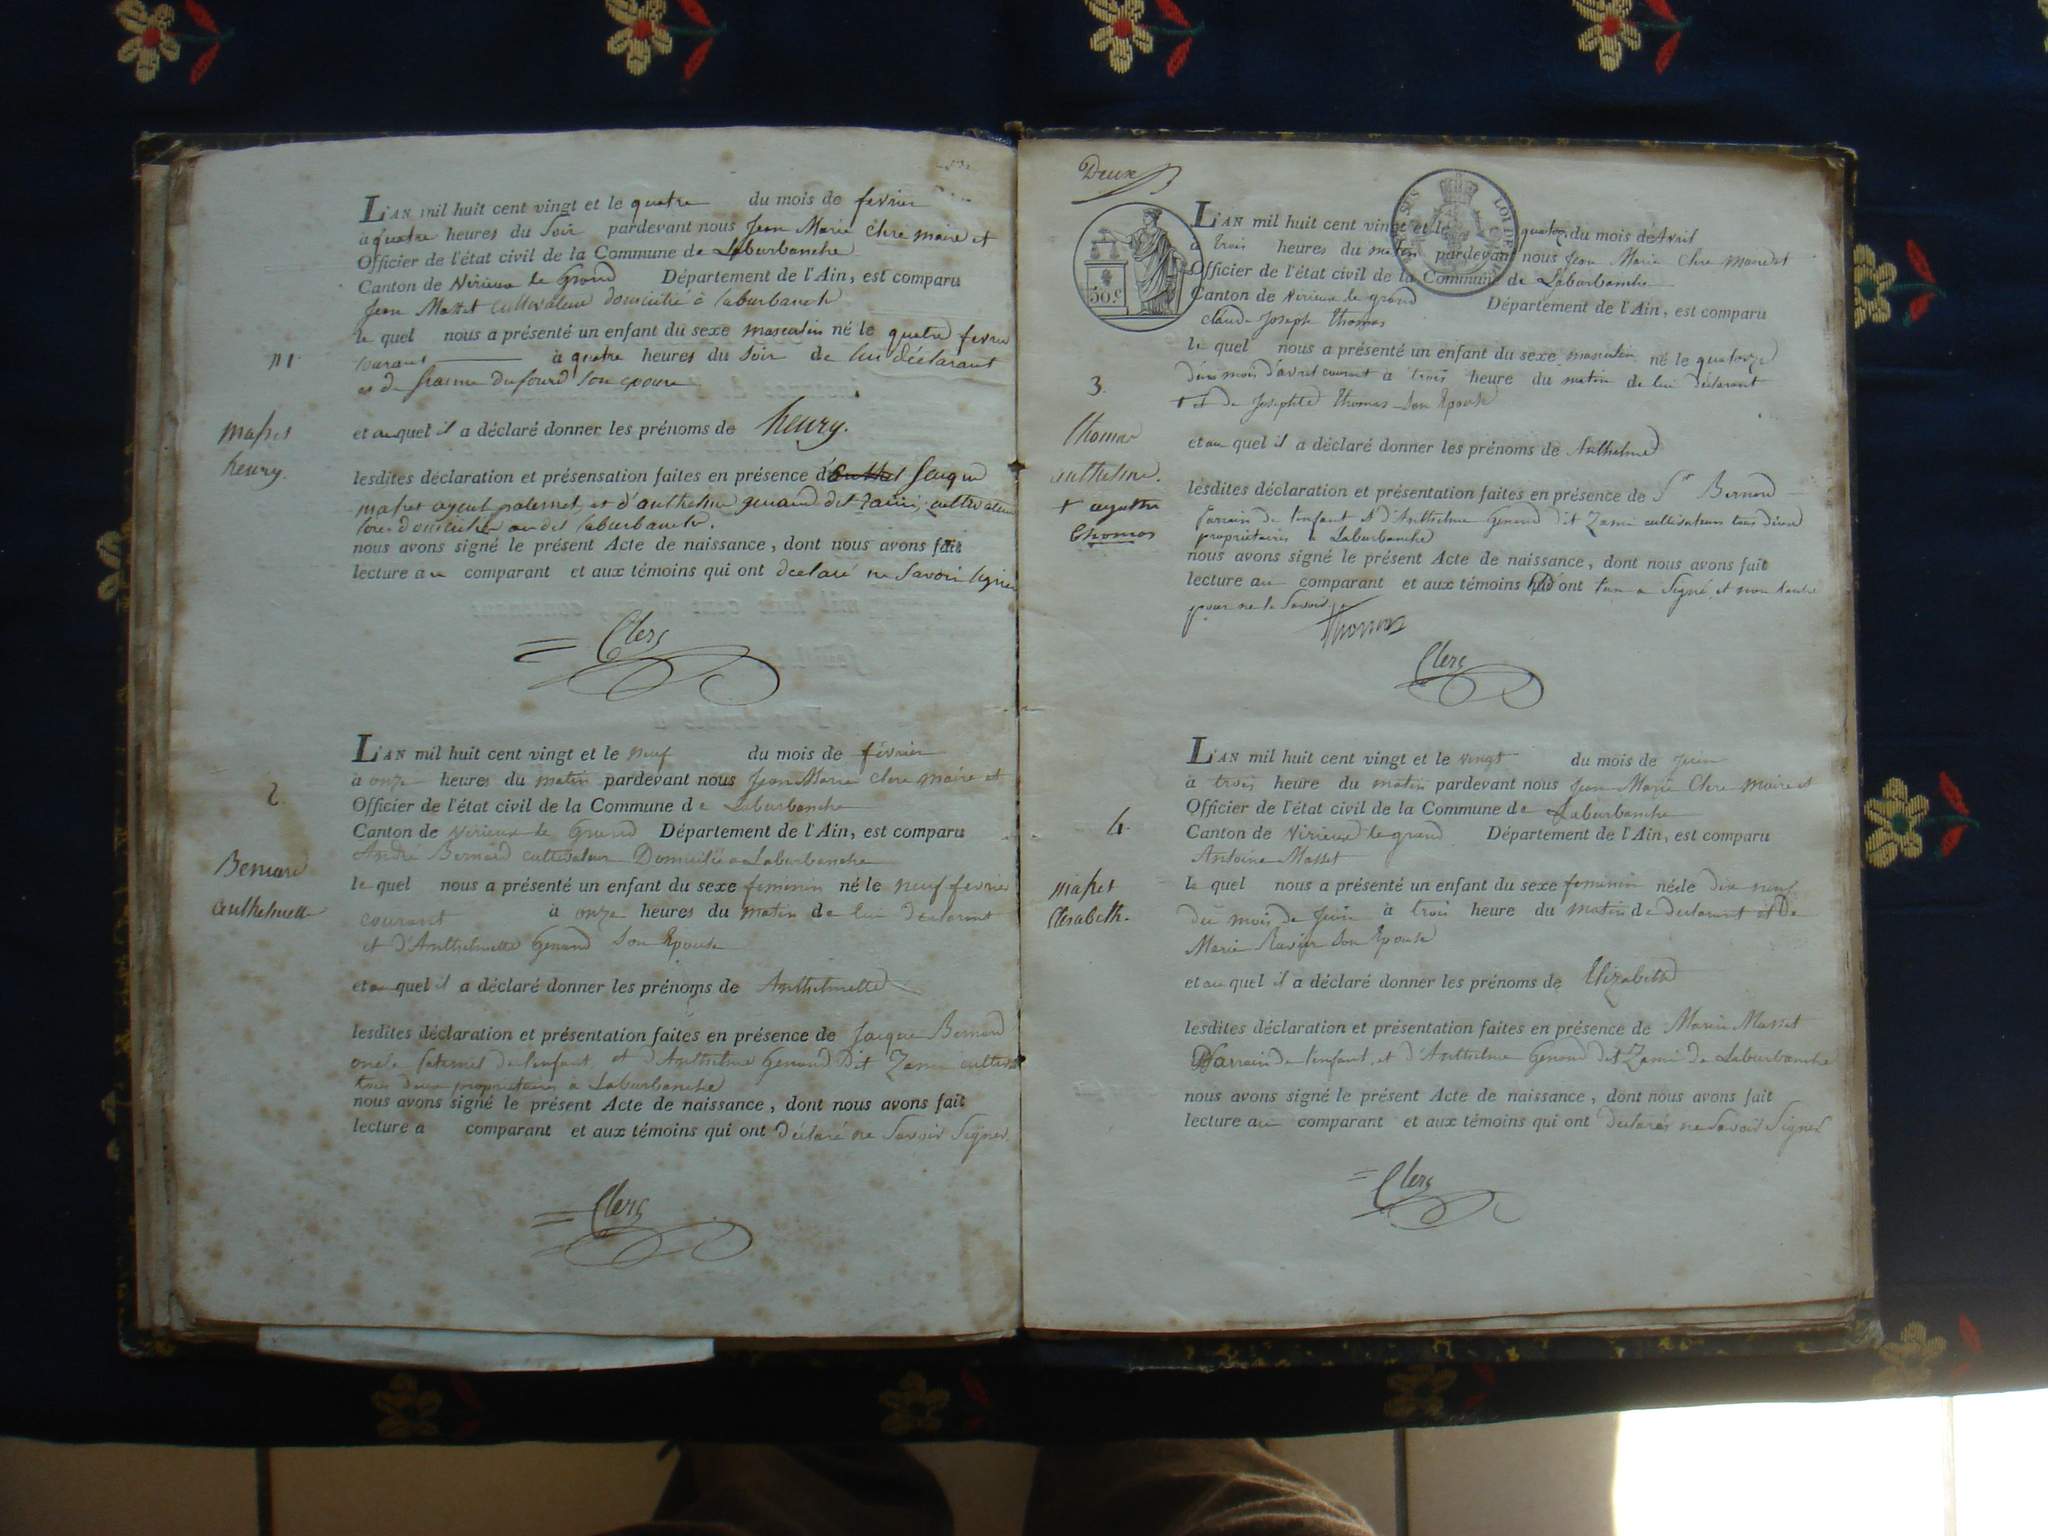 L'AN mil huit cent vingt et le quatre du mois de fevrier
à quatre heures du Soir pardevant nous Jean Marie Clerc maire et
Officier de l'état civil de la Commune de Laburbanche
Canton de Virieux le Grand Département de l'Ain, est comparu
Jean Masset cultivateur domicilié à laburbanche
le quel nous a présenté un enfant du sexe masculin né le quatre fevrier
courant à quatre heures du Soir de lui déclarant
et de son epouse
et au quel il a déclaré donner les prénoms de henry.
masset
henry.
lesdites déclaration et présensation faites en présence de Jacque
masset ayeul paternel, et d'anthelme genand dit zami, cultivateurs
tous domiciliés au dit laburbanche.
nous avons signé le présent Acte de naissance, dont nous avons fait
lecture au comparant et aux témoins qui ont declaré ne Savoir Signer
Clerc
L'AN mil huit cent vingt et le neuf du mois de février
à onze heures du matin pardevant nous Jean Marie Clerc maire et
2.
Officier de l'état civil de la Commune de Laburbanche
Canton de Virieux le Grand Département de l'Ain, est comparu
André Bernard cultivateur Domicilié a Laburbanche
Bernard
anthelmette
le quel nous a présenté un enfant du sexe feminin né le neuf fevrier
courant à onze heures du matin de lui déclarant
et d'Anthelmette Genand Son Epouse
et au quel il a déclaré donner les prénoms de Anthelmette
lesdites déclaration et présentation faites en présence de Jacque Bernard
oncle paternel de l'enfant, et d'Anthelme Genand Dit Zami cultivateurs
tous deux propriétaires a Laburbanche
nous avons signé le présent Acte de naissance, dont nous avons fait
lecture a comparant et aux témoins qui ont déclaré ne Savoir Signer.
Clerc
Deux
50.c
LOI DE
L'AN mil huit cent vingt et le quatorze du mois de Avril
à trois heures du matin pardevant nous Jean Marie Clerc maire et
Officier de l'état civil de la Commune de Laburbanche
Canton de Virieux le grand Département de l'Ain, est comparu
Claude Joseph Thomas
le quel nous a présenté un enfant du sexe masculin né le quatorze
du mois d'avril courant à trois heure du matin de lui déclarant
3.
et de Josephte Thomas Son Epouse
Thomas
anthelme.
+ Thomas
et au quel il a déclaré donner les prénoms de Anthelme
lesdites déclaration et présentation faites en présence de Bernard
parrain de l'enfant et d'Anthelme Genand dit Zami cultivateurs tous deux
propriétaires a Laburbanche
nous avons signé le présent Acte de naissance, dont nous avons fait
lecture au comparant et aux témoins qui ont l'un a Signé, et non l'autre
pour ne le Savoir.
Thomas
Clerc
L'AN mil huit cent vingt et le vingt du mois de Juin
à trois heure du matin pardevant nous Jean Marie Clerc maire et
Officier de l'état civil de la Commune de Laburbanche
4.
Canton de Virieux le grand Département de l'Ain, est comparu
Antoine Masset
masset
Elisabeth.
le quel nous a présenté un enfant du sexe feminin né le dix neuf
du mois de Juin à trois heure du matin de declarant et de
Marie Ravier Son Epouse
et au quel il a déclaré donner les prénoms de Elizabeth
lesdites déclaration et présentation faites en présence de Marie Masset
Marraine de l'enfant, et d'Anthelme Genand dit Zami de Laburbanche
nous avons signé le présent Acte de naissance, dont nous avons fait
lecture au comparant et aux témoins qui ont déclarés ne Savoir Signer
Clerc